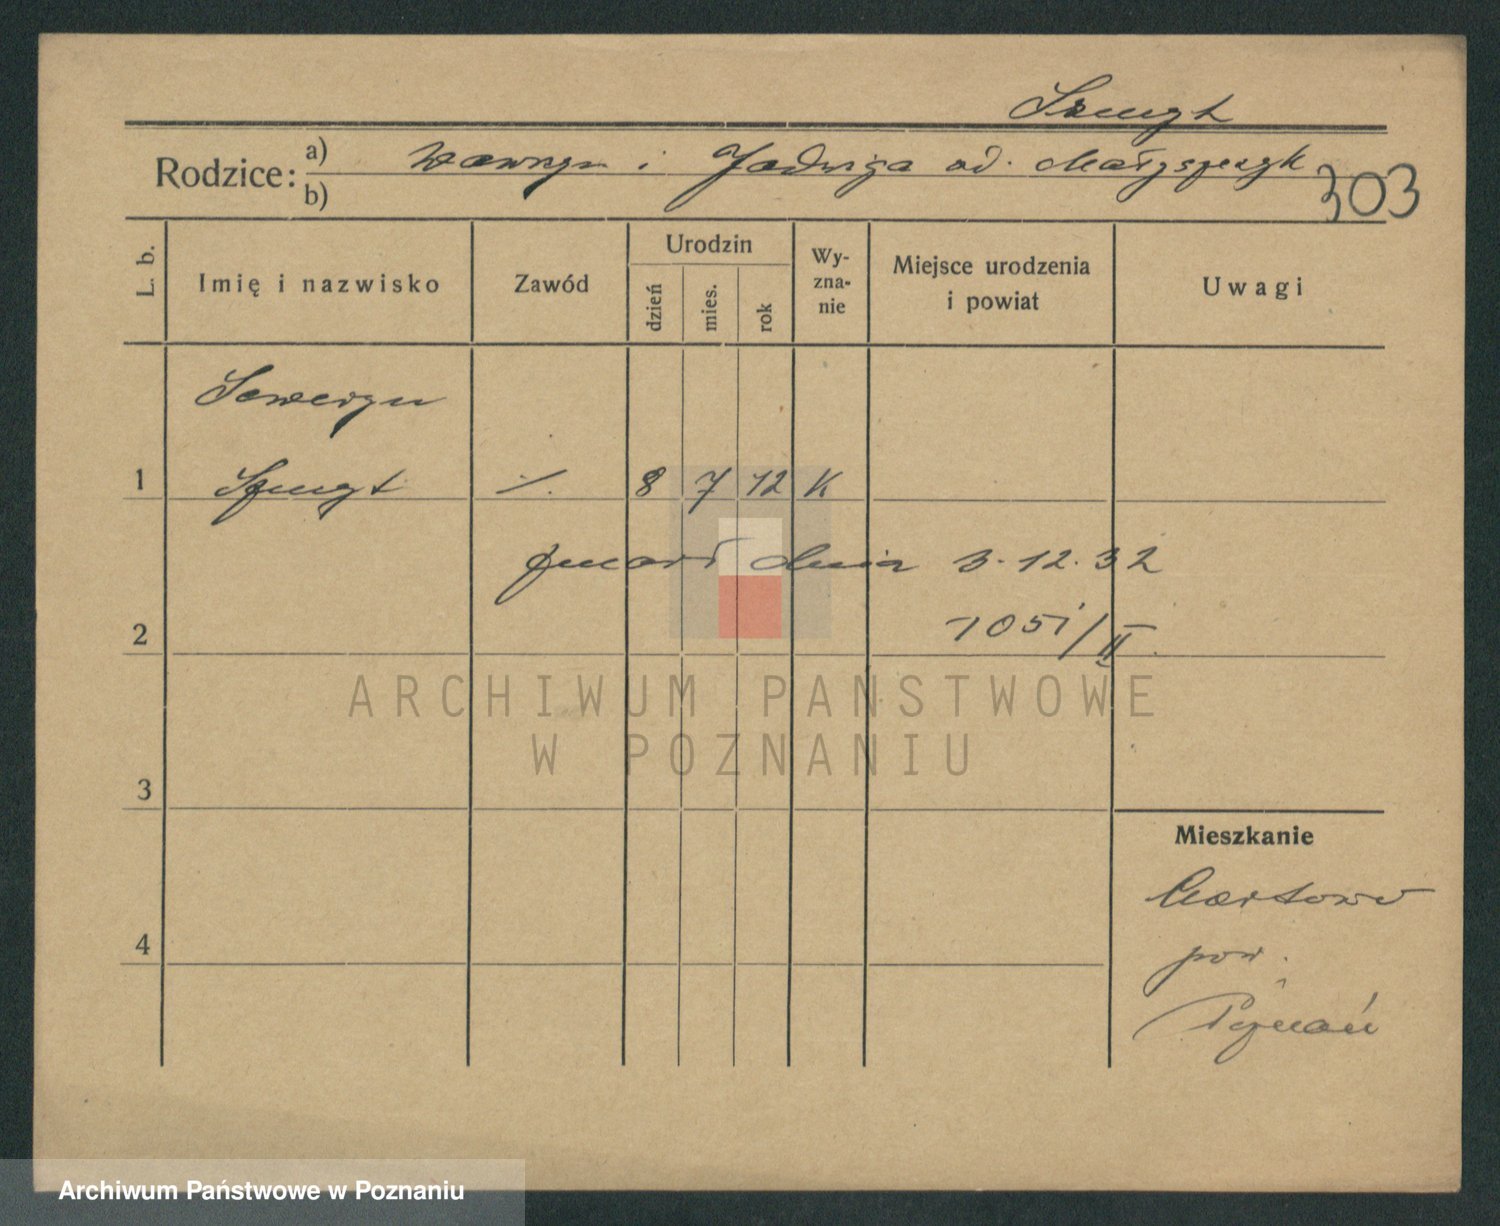 Szmyt
Rodzice: a) Wawrzyn i Jadwiga od. Małyszczyk
b)
303
L. b.
Imię i nazwisko
Zawód
Urodzin
dzień
mies.
rok
Wy-
zna-
nie
Miejsce urodzenia
i powiat
Uwagi
Seweryn
1 Szmyt ./. 8 7 12 K
zmarł dnia 3.12.32
2 1051/II
ARCHIWUM PAŃSTWOWE
W POZNANIU
3
Mieszkanie
4
pow.
Poznań
Archiwum Państwowe w Poznaniu